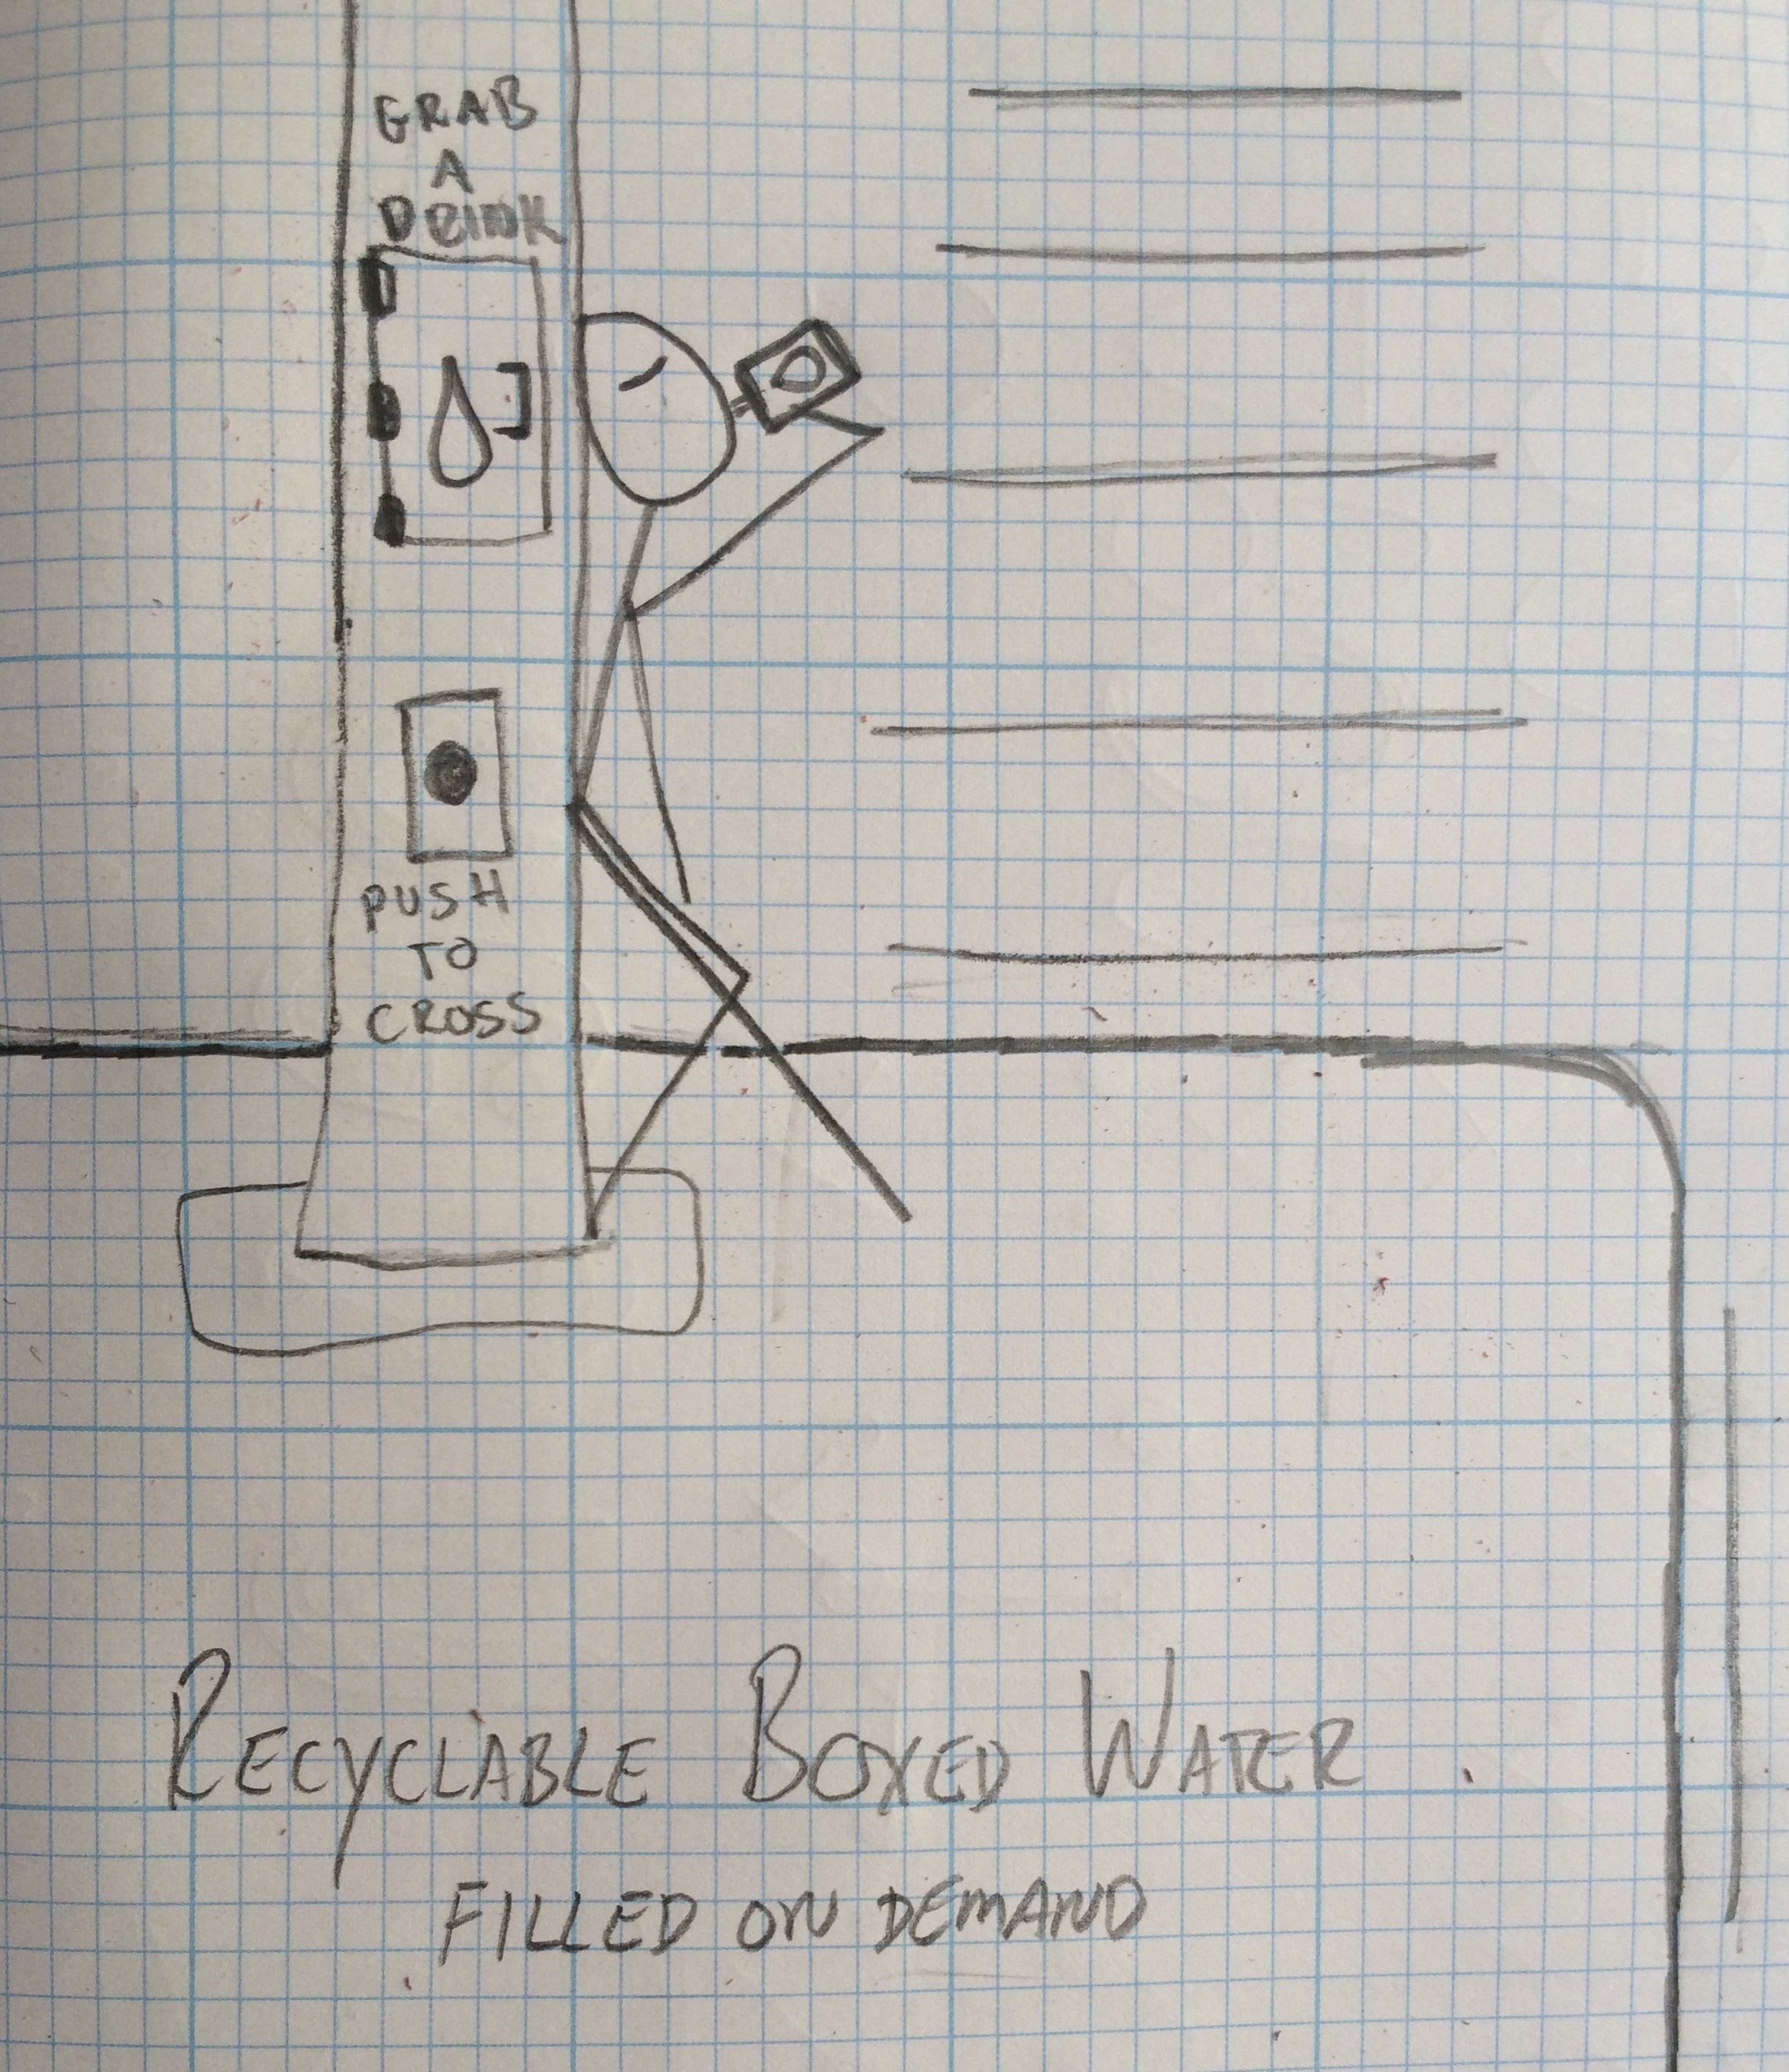 GRAB
A
DRINK
PUSH
TO
CROSS
RECYCLABLE BOXED WATER
FILLED ON DEMAND